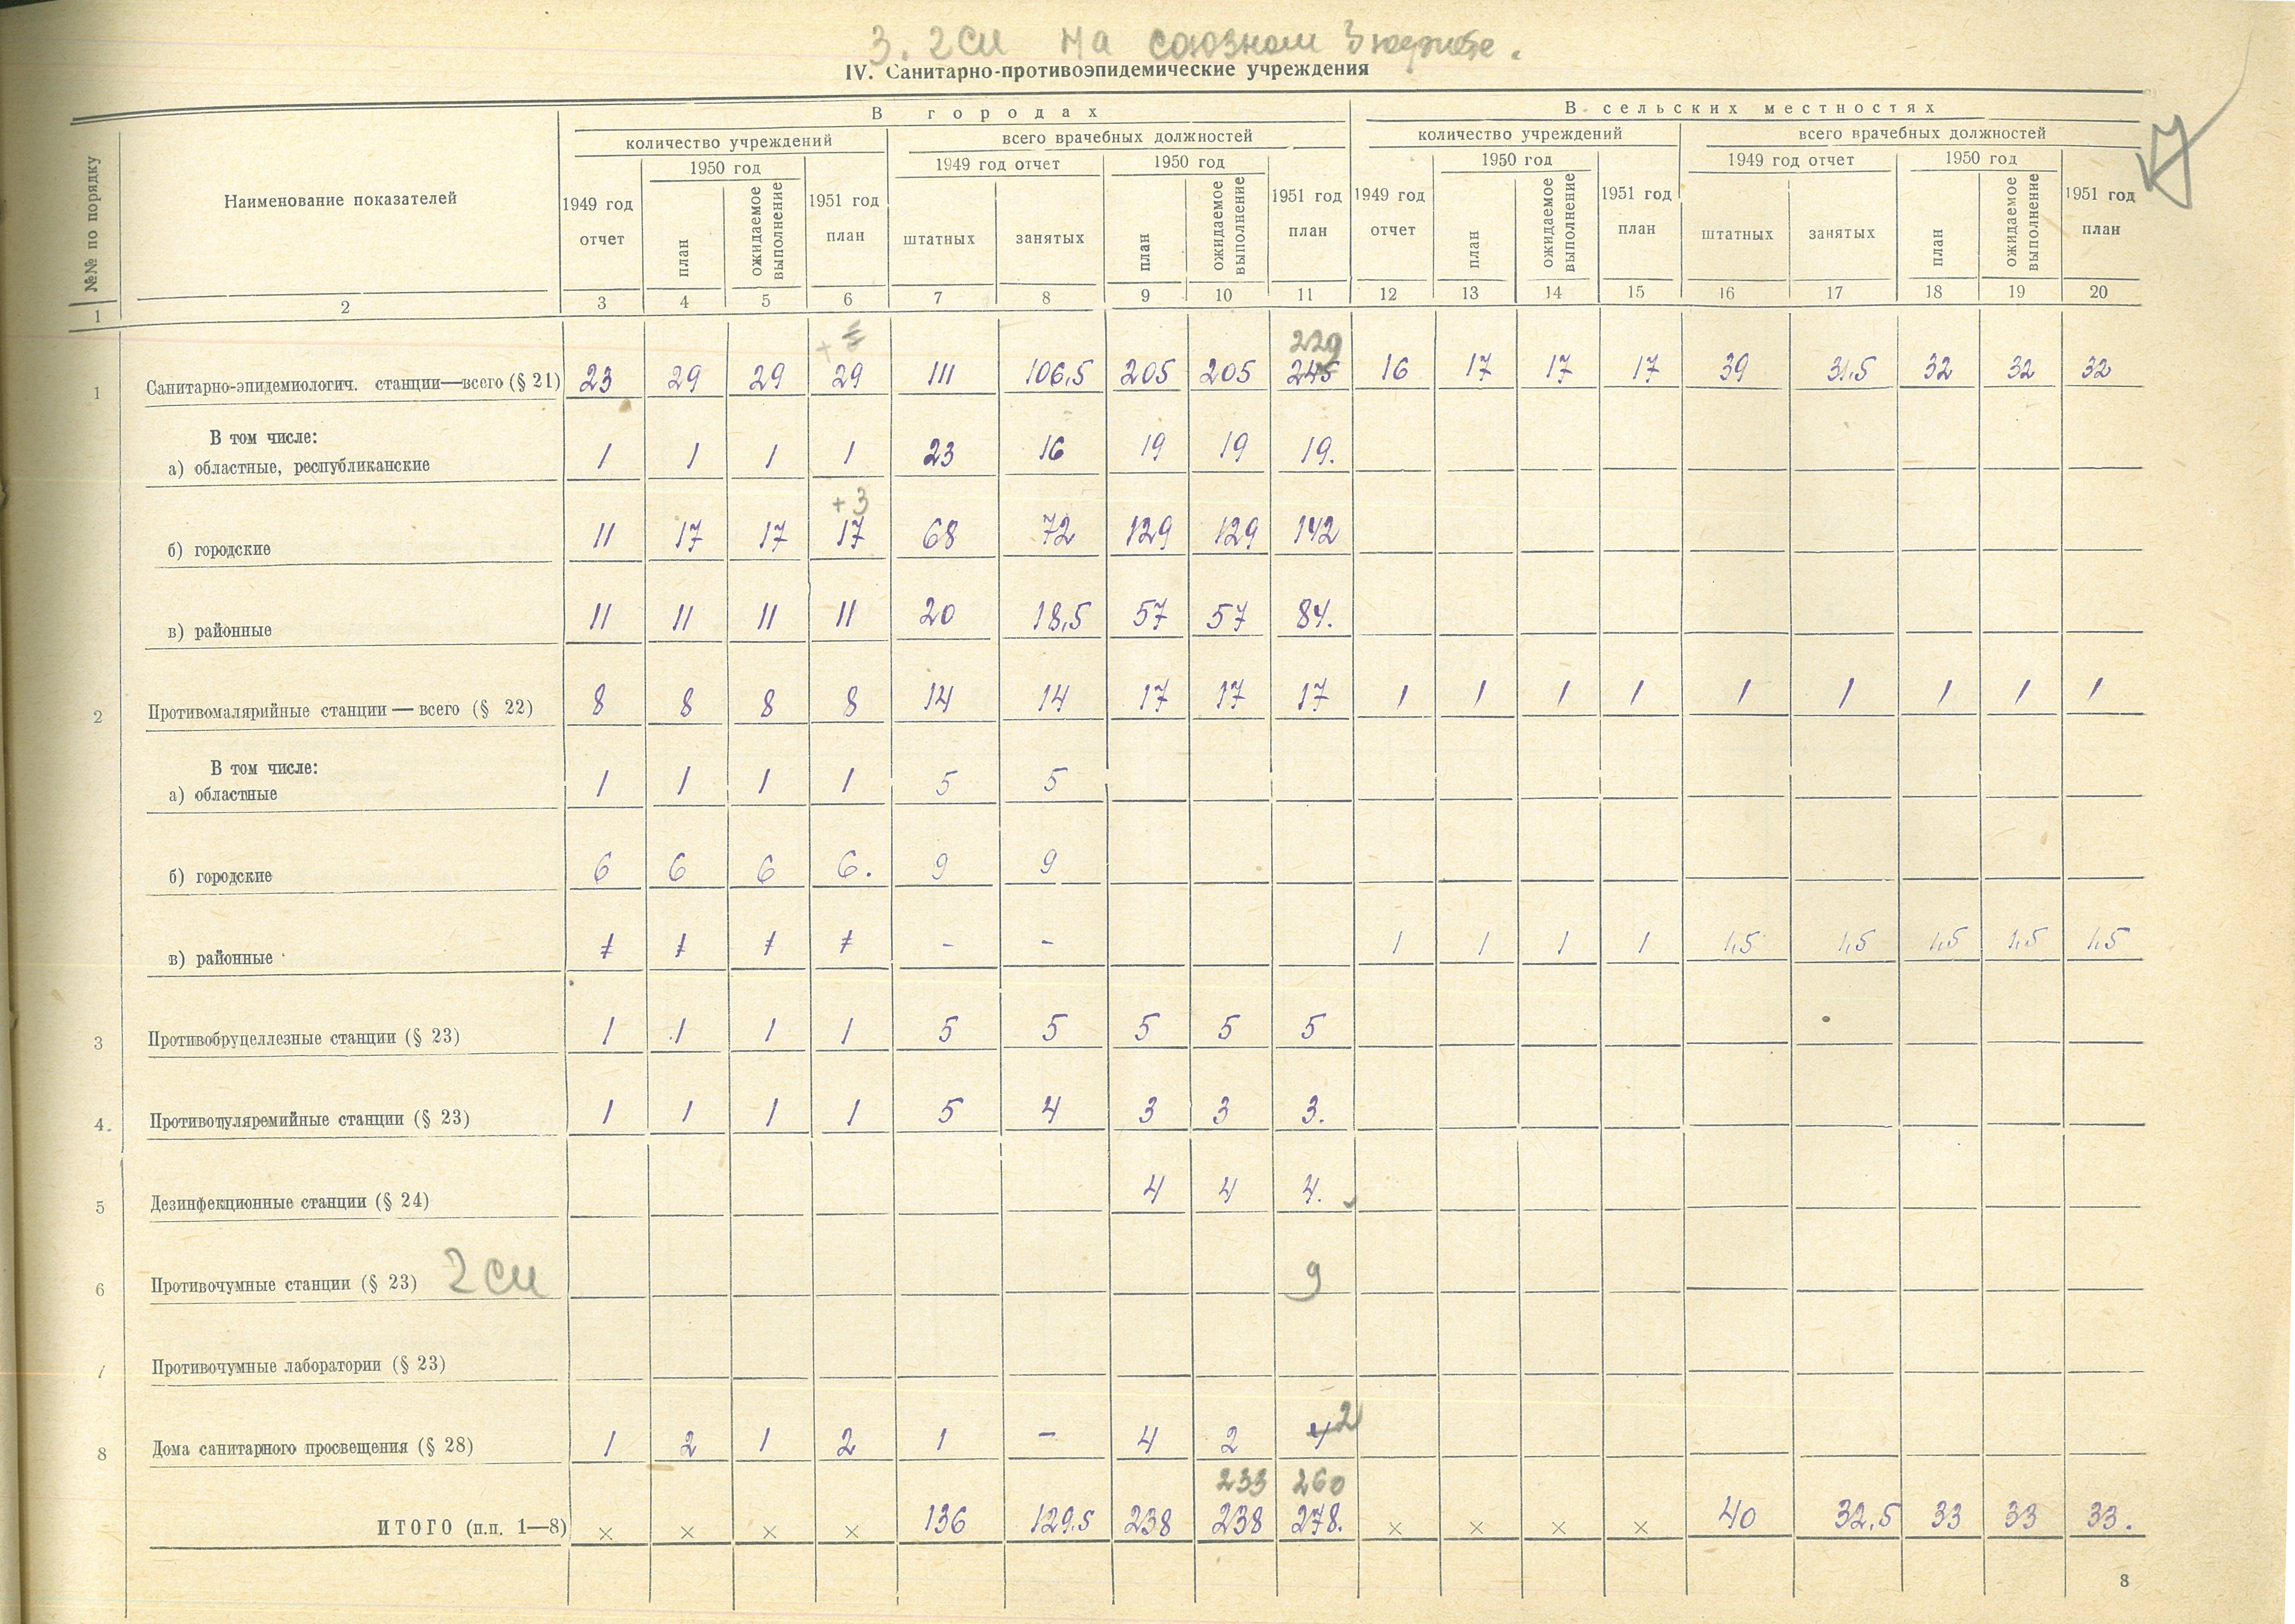 3. 2 си на союзном
IV. Санитарно-противоэпидемические учреждения
№№ по порядку
Наименование показателей
В городах
В сельских местностях
количество учреждений
всего врачебных должностей
количество учреждений
всего врачебных должностей
1949 год отчет
1950 год
план
ожидаемое выполнение
1951 год план
1949 год отчет
штатных
занятых
1950 год
план
ожидаемое выполнение
1951 год план
1949 год отчет
1950 год
план
ожидаемое выполнение
1951 год план
1949 год отчет
штатных
занятых
1950 год
план
ожидаемое выполнение
1951 год план
1 2 3 4 5 6 7 8 9 10 11 12 13 14 15 16 17 18 19 20
229
1 Санитарно-эпидемиологич. станции—всего (§ 21) 23 29 29 29 111 106,5 205 205 245 16 17 17 17 39 31,5 32 32 32
В том числе:
а) областные, республиканские 1 1 1 1 23 16 19 19 19.
+3
б) городские 11 17 17 17 68 72 129 129 142
в) районные 11 11 11 11 20 18,5 57 57 84.
2 Противомалярийные станции — всего (§ 22) 8 8 8 8 14 14 17 17 17 1 1 1 1 1 1 1 1 1
В том числе:
а) областные 1 1 1 1 5 5
б) городские 6 6 6 6. 9 9
в) районные 1 1 1 1 - - 1 1 1 1 1,5 1,5 1,5 1,5 1,5
3 Противобруцеллезные станции (§ 23) 1 1 1 1 5 5 5 5 5
4. Противотуляремийные станции (§ 23) 1 1 1 1 5 4 3 3 3.
5 Дезинфекционные станции (§ 24) 4 4 4.
6 Противочумные станции (§ 23) 2 си 9
7 Противочумные лаборатории (§ 23)
8 Дома санитарного просвещения (§ 28) 1 2 1 2 1 - 4 2 4 2
233 260
ИТОГО (п.п. 1—8) × × × × 136 129,5 238 238 278. × × × × 40 32,5 33 33 33.
8